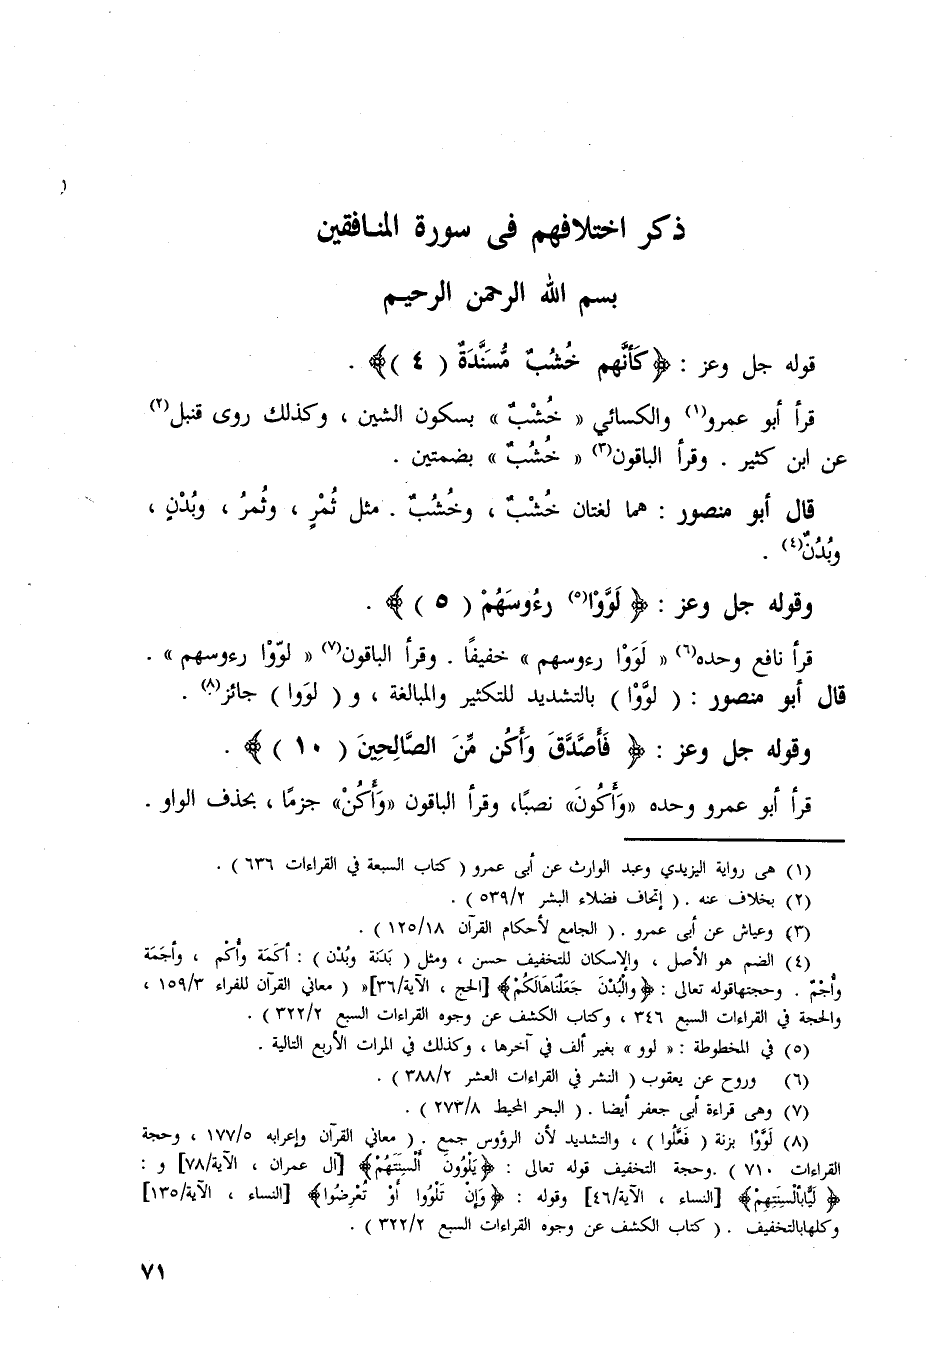 ذكر اختلافهم فى سورة المنافقين
بسم الله الرحمن الرحيم
قوله جل وعز : ﴿ كَأَنَّهم خُشُبٌ مُّسَنَّدَةٌ ( ٤ )﴾ .
قرأ أبو عمرو(١) والكسائي « خُشْبٌ » بسكون الشين ، وكذلك روى قنبل(٢)
عن ابن كثير . وقرأ الباقون(٣) « خُشُبٌ » بضمتين .
قال أبو منصور : هما لغتان خُشْبٌ ، وخُشُبٌ . مثل ثُمْرٍ ، وثُمرُ ، وبُدْنٍ ،
وبُدُنٌ(٤) .
وقوله جل وعز : ﴿ لَوَّوْا(٥) رءُوسَهُمْ ( ٥ ) ﴾ .
قرأ نافع وحده(٦) « لَوَوْا رءوسهم » خفيفًا . وقرأ الباقون(٧) « لوّوْا رءوسهم » .
قال أبو منصور : ( لوَّوْا ) بالتشديد للتكثير والمبالغة ، و ( لوَوا ) جائز(٨) .
وقوله جل وعز : ﴿ فَأَصَّدَّقَ وَأَكُن مِّنَ الصَّالِحِينَ ( ١٠ ) ﴾ .
قرأ أبو عمرو وحده «وَأَكُونَ» نصبًا، وقرأ الباقون «وَأَكُنْ» جزمًا ، بحذف الواو .
(١) هى رواية اليزيدي وعبد الوارث عن أبى عمرو ( كتاب السبعة في القراءات ٦٣٦ ) .
(٢) بخلاف عنه . ( إتحاف فضلاء البشر ٥٣٩/٢ ) .
(٣) وعياش عن أبى عمرو . ( الجامع لأحكام القرآن ١٢٥/١٨ ) .
(٤) الضم هو الأصل ، والإسكان للتخفيف حسن ، ومثل ( بَدَنَة وبُدْن ) : أكَمَة وأُكْم ، وأجَمَة
وأُجْمٌ . وحجتهاقوله تعالى : ﴿ والْبُدْنَ جَعَلْنَاهَالَكُمْ﴾ [الحج ، الآية/٣٦]« ( معاني القرآن للفراء ١٥٩/٣ ،
والحجة في القراءات السبع ٣٤٦ ، وكتاب الكشف عن وجوه القراءات السبع ٣٢٢/٢ ) .
(٥) في المخطوطة : « لوو » بغير ألف في آخرها ، وكذلك في المرات الأربع التالية .
(٦) وروح عن يعقوب ( النشر في القراءات العشر ٣٨٨/٢ ) .
(٧) وهى قراءة أبى جعفر أيضا . ( البحر المحيط ٢٧٣/٨ ) .
(٨) لَوَّوْا بزنة ( فَعَّلُوا ) ، والتشديد لأن الرؤوس جمع . ( معاني القرآن وإعرابه ١٧٧/٥ ، وحجة
القراءات ٧١٠ ) .وحجة التخفيف قوله تعالى : ﴿يَلْوُونَ أَلْسِنَتَهُمْ﴾ [آل عمران ، الآية/٧٨] و :
﴿ لَيًّابأَلْسِنَتِهِمْ﴾ [النساء ، الآية/٤٦] وقوله : ﴿وَإِنْ تَلْوُوا أَوْ تُعْرِضُوا﴾ [النساء ، الآية/١٣٥]
وكلهابالتخفيف . ( كتاب الكشف عن وجوه القراءات السبع ٣٢٢/٢ ) .
٧١